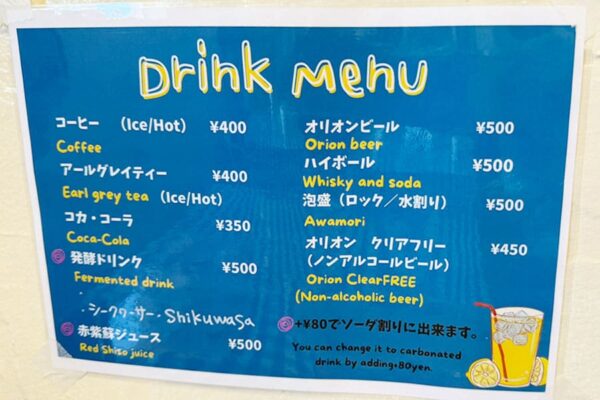 Drink Menu
コーヒー (Ice/Hot) ¥400
Coffee
アールグレイティー ¥400
Earl grey tea (Ice/Hot)
コカ・コーラ ¥350
Coca-Cola
発酵ドリンク ¥500
Fermented drink
・シークワーサー・Shikuwasa
赤紫蘇ジュース ¥500
Red Shiso juice
オリオンビール ¥500
Orion beer
ハイボール ¥500
Whisky and soda
泡盛(ロック/水割り) ¥500
Awamori
オリオン クリアフリー ¥450
(ノンアルコールビール)
Orion ClearFREE
(Non-alcoholic beer)
+¥80でソーダ割りに出来ます。
You can change it to carbonated
drink by adding+80yen.